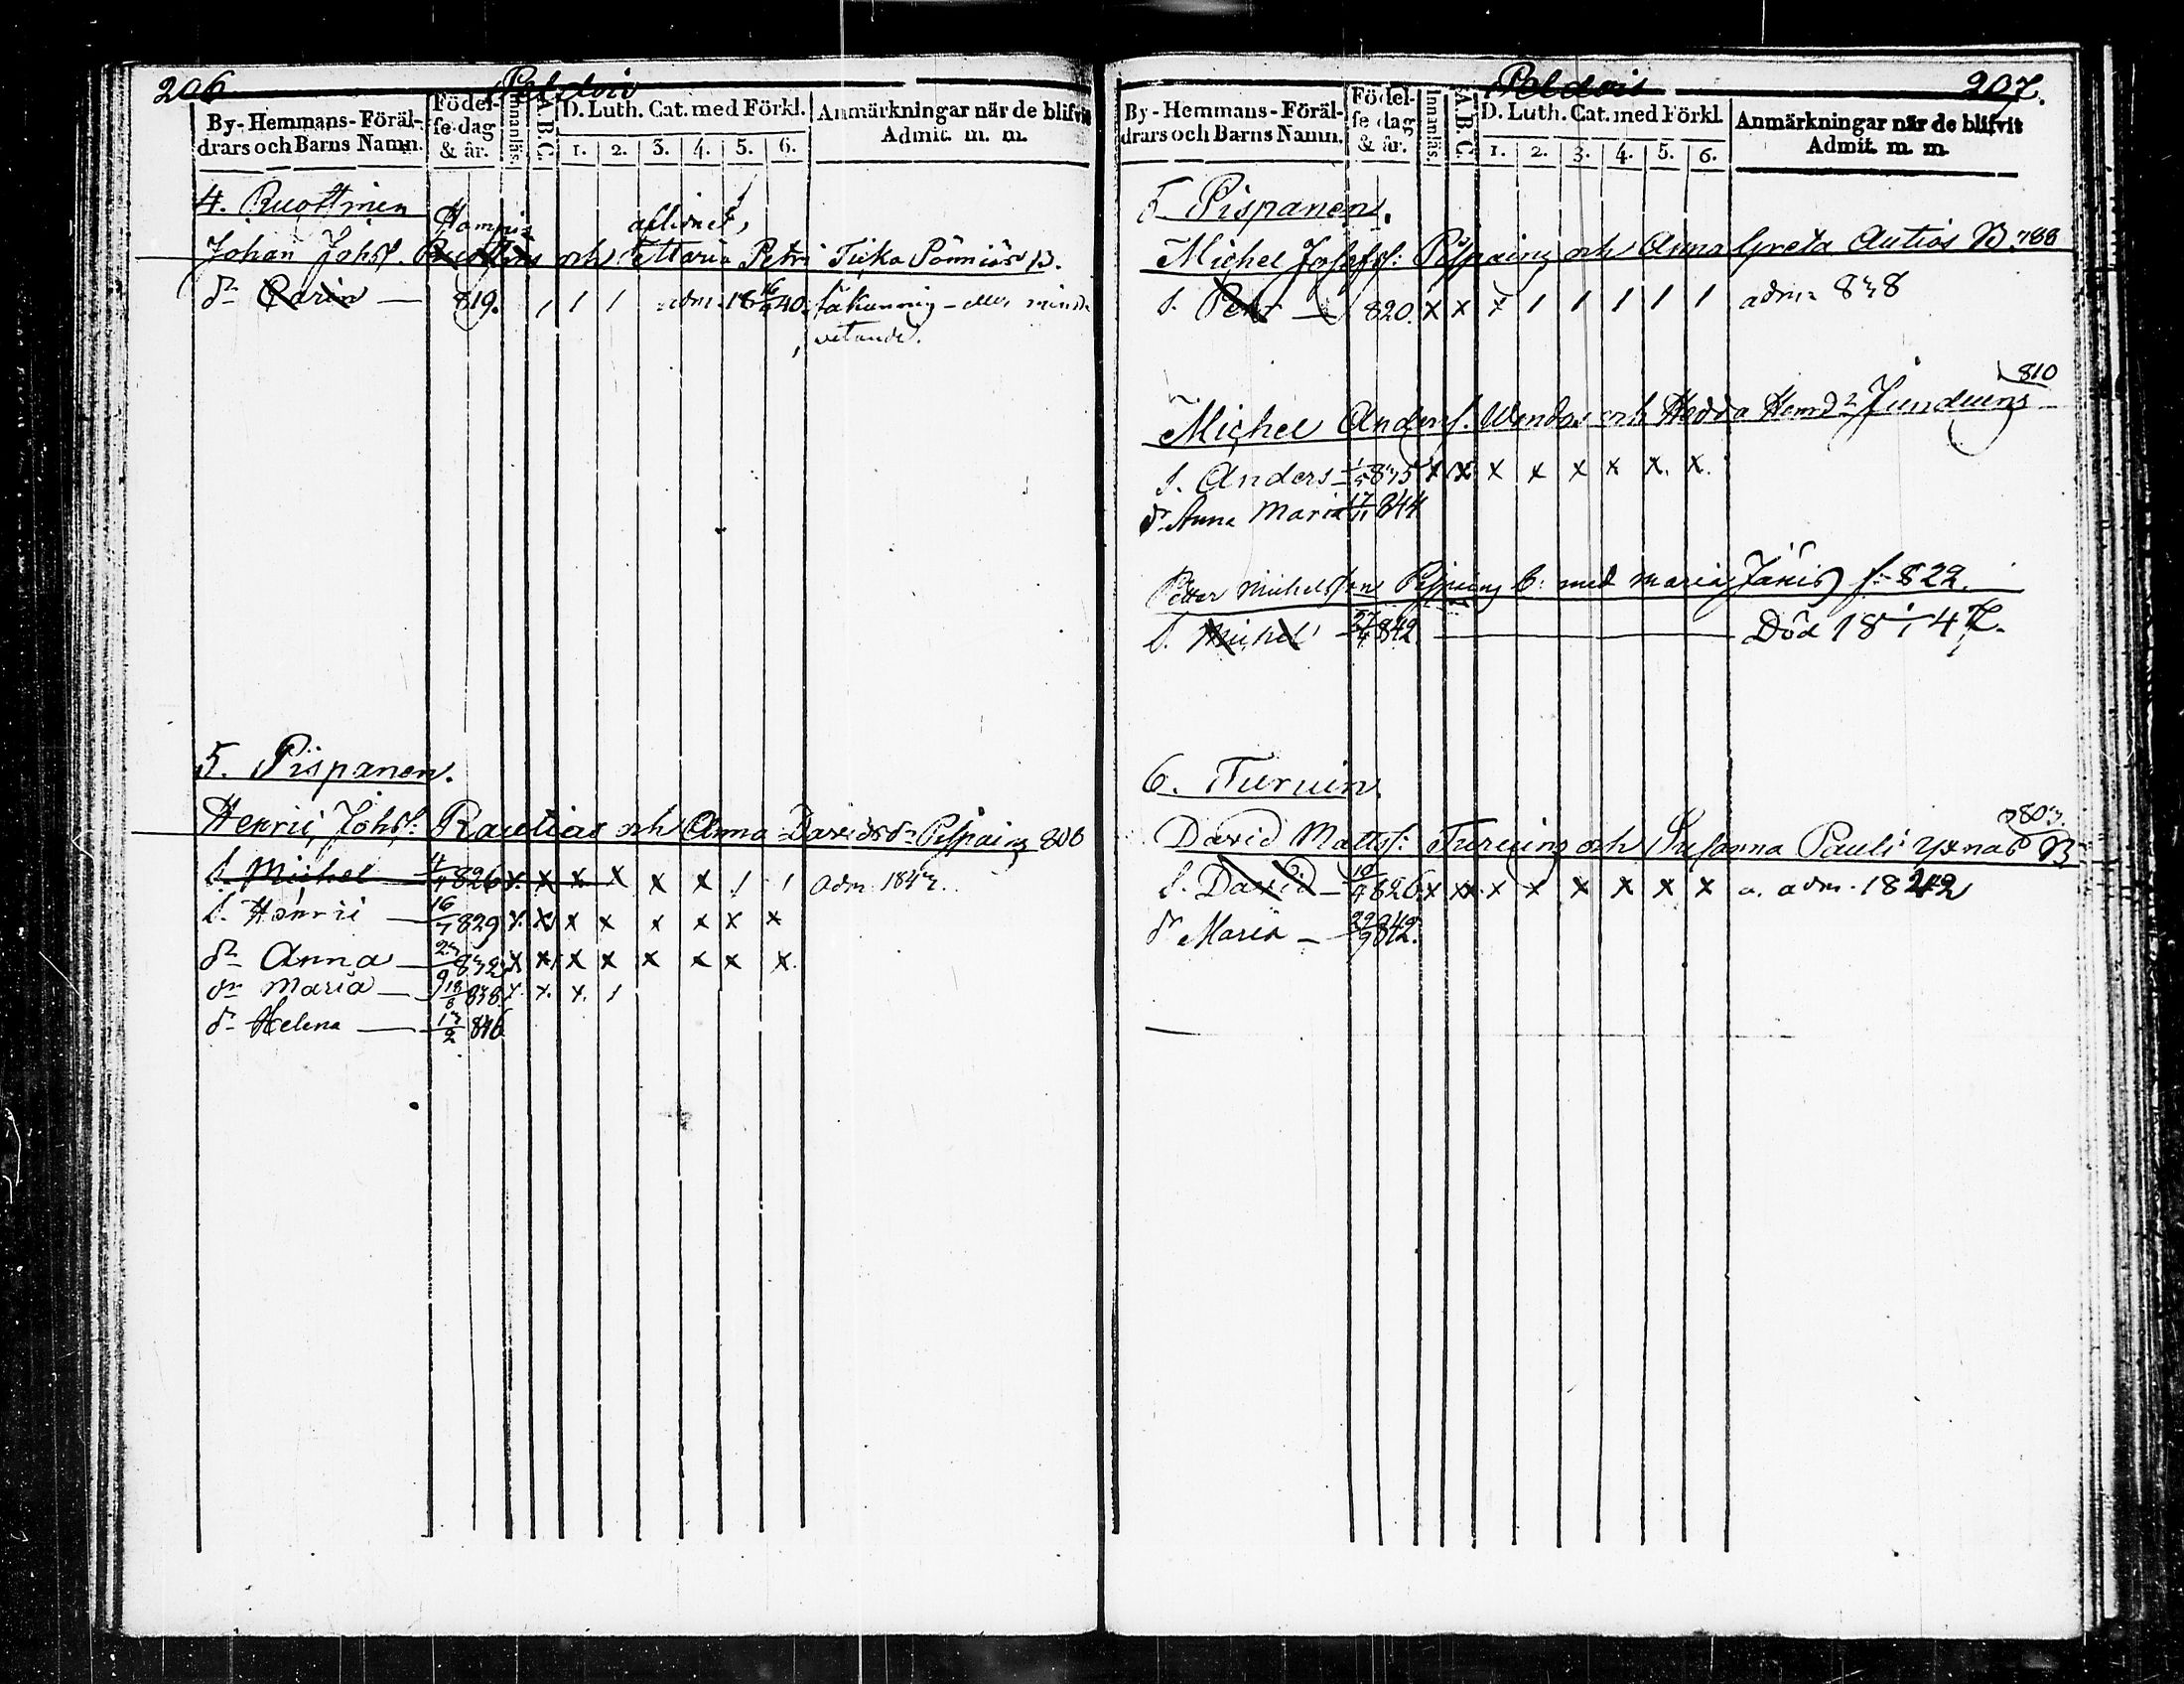 206
Födel-
se dag
& år.
By-Hemmans-Föräl-
drars och Barns Namn.
Innanläs.
A.B.C.
D. Luth. Cat. med Förkl.
1. 2. 3. 4. 5. 6.
Anmärkningar när de blifvit
Admit. m. m.
4. Ruottinen
Johan Johs. och Maria Petri
dr Carin — 819. 1 1 1 adm. 18 16/ 40.
5. Pispanen.
Henric Johs: Rautias och Anna Davidsdr Pispain 806
S. Michel 826 x. x x. x x x 1 1 adm. 1843.
S. Henric — 16/7 829 x. x x x x x x x
dr Anna — 23/9 832 x x x x x x x x.
dr Maria — 18/8 838. x. x. x. 1
dr Helena — 13/2 846
Poldois 207.
By-Hemmans-Föräl-
drars och Barns Namn.
Födel-
se dag
& år.
Innanläs.
A.B.C.
D. Luth. Cat. med Förkl.
1. 2. 3. 4. 5. 6.
Anmärkningar när de blifvit
Admit. m. m.
5 Pispanen.
Michel Josefs: Pispain och Anna Greta Autiois B. 788
S. Petr — 820. x x x 1 1 1 1 1 adm. 838
810
Michel Anders. och Hedda
S. Anders — 835 x x x x x x x. x.
dr Anna Maria 17/11 844
Petter Michelsson Pispain G: med Maria Jänis f. 822.
S. Michel 27/4 842. — Död 18 47.
6. Turuin.
803.
David Matts: Turuin och Susanna Pauli B
S. David — 10/4 826. x x x x x x x x a. adm. 1842
dr Maria — 29/9 842.